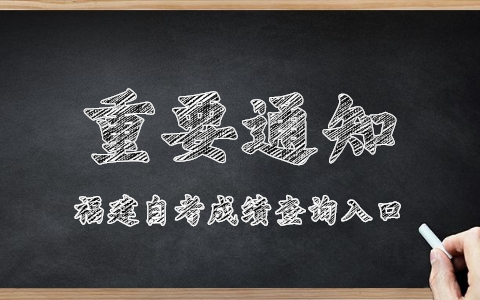 重要通知
福建自考成绩查询入口